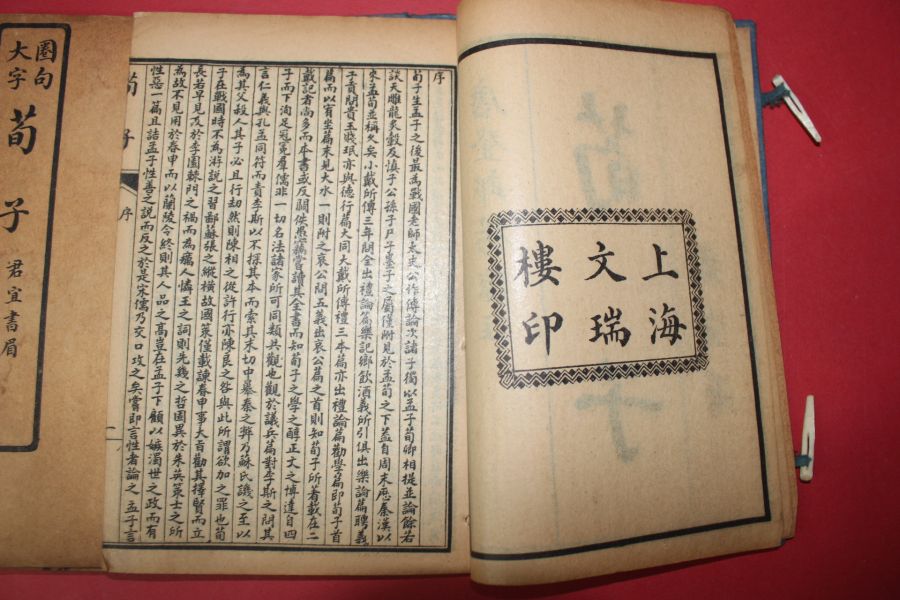 上海
文瑞
樓印
序
荀子生孟子之後最為戰國老師太史公作傳論次諸子獨以孟子荀卿相提並論餘若
談天雕龍炙轂及慎子公孫子尸子墨子之屬僅附見於孟荀之下蓋自周末歷秦漢以
來孟荀並稱久矣小戴所傳三年問全出禮論篇樂記鄉飲酒義所引俱出樂論篇聘義
子貢問貴玉賤珉亦與德行篇大同大戴所傳禮三本篇亦出禮論篇勸學篇即荀子首
篇而以宥坐篇末見大水一則附之哀公問五義出哀公篇之首則知荀子所著載在二
戴記者尚多而本書或反闕佚愚竊嘗讀其全書而知荀子之學之醇正文之博達自四
子而下洵足冠冕羣儒非一切名法諸家所可同類共觀也觀於議兵篇對李斯之問其
言仁義與孔孟同符而責李斯以不探其本而索其末切中暴秦之弊乃蘇氏譏之至以
為其父殺人其子必且行劫然則陳相之從許行亦陳良之咎與此所謂欲加之罪也荀
子在戰國時不為游說之習鄙蘇張之縱橫故國策僅載諫春申事大旨勸其擇賢而立
長若早見及於李園棘門之禍而為癘人憐王之詞則先幾之哲固異於朱英策士之所
為故不見用於春申而以蘭陵令終則其人品之高豈在孟子下顧以嫉濁世之政而有
性惡一篇且詰孟子性善之說而反之於是宋儒乃交口攻之矣嘗即言性者論之孟子言
荀子 序 一
圈句
大字
荀子
君宜書眉